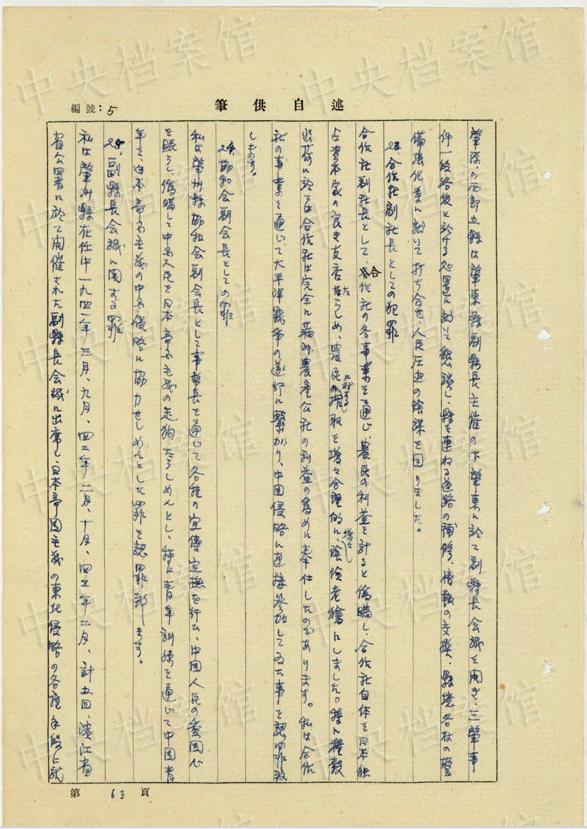 筆供自述
編號：5
肇源、西部五縣は肇東縣副縣長主催の下肇東に於て副縣長会議を開き、三肇事
件一段落後に於ける処置に就いて協議し、縣を連ねる道路の補修、情報の交換、縣境各村の警
備強化等に就いて打ち合せ、人民圧迫の陰謀を図りました。
23、合作社副社長としての犯罪
合作社副社長として、合作社の各事業を通じ、農民の利益を計ると偽瞞し、合作社自体を日本独
占資本家の良き支店たらしめ、農民に対する搾取を増々合理的に、増々陰険老獪にしました。特に糧穀
出荷に於ては合作社は完全に農産公社の利益の為めに奉仕したのであります。私は合作
社の事業を通じて太平洋戦争の遂行に繋がり、中国侵略に直接参加してゐた事を認罪致
します。
24、協和会副会長としての罪
私は肇州縣協和会副会長として事務長を通じて各種の宣傳宣撫を行ひ、中國人民の愛国心
を眠らし、偽瞞して中国人民を日本帝国主義の走狗たらしめんとし、特に青年訓練を通じて中国青
年を、日本帝国主義の中国侵略に協力せしめんとした罪を認罪致します。
25、副縣長会議に関する罪
私は肇州縣在任中一九四一年三月、九月、四二年二月、十月、四三年二月、計五回、濱江省
省公署に於て開催された副縣長会議に出席し日本帝国主義の東北侵略の各種手段に就
中央档案馆
第 63 頁